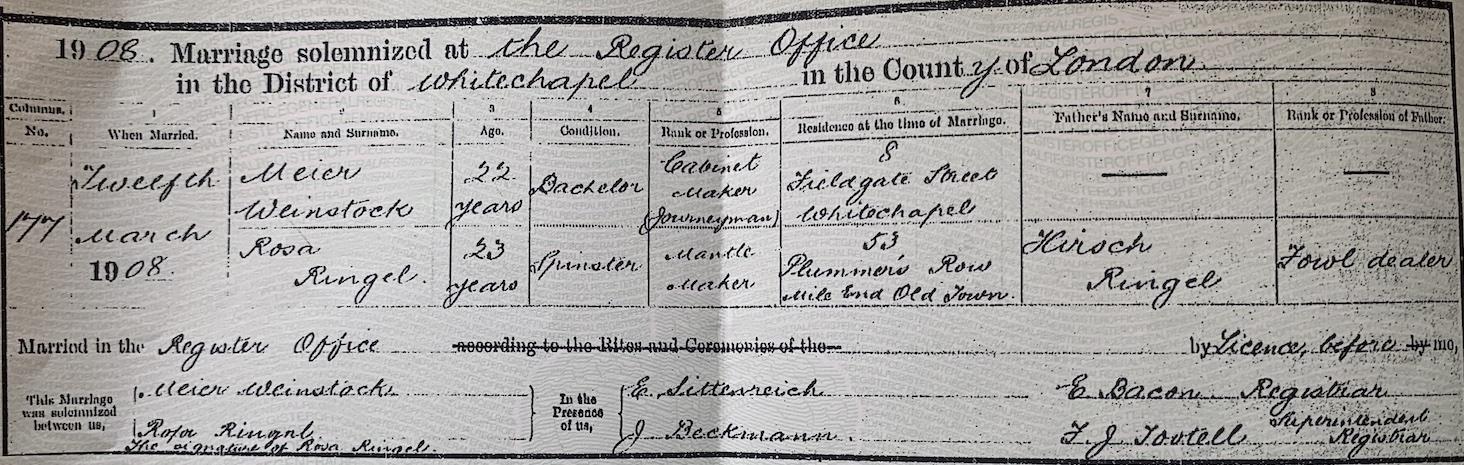 1908. Marriage solemnized at the Register Office
in the District of Whitechapel in the County of London
Columns. 1 2 3 4 5 6 7 8
No. When Married. Name and Surname. Age. Condition. Rank or Profession. Residence at the time of Marriage. Father's Name and Surname. Rank or Profession of Father.
177
Twelfth
March
1908.
Meier
Weinstock
22
years
Bachelor
Cabinet
Maker
(Journeyman)
8
Fieldgate Street
Whitechapel
—
—
Rosa
Ringel.
23
years
Spinster
Mantle
Maker
53
Plummer's Row
Mile End Old Town.
Hirsch
Ringel
Fowl dealer
Married in the Register Office according to the Rites and Ceremonies of the by Licence, before by me,
This Marriage
was solemnized
between us,
Meier Weinstock
Rosa Ringel
The signature of Rosa Ringel.
In the
Presence
of us,
E. Sittenreich
J Beckmann.
E Bacon Registrar
F. J. Tootell Superintendent
Registrar